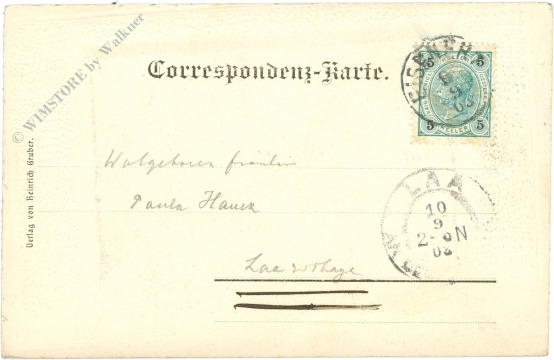 © WIMSTORE by Walkner
Correspondenz-Karte.
5 5
5 HELLER 5
Verlag von Heinrich Gruber.
Wolgeboren Fräulein
Paula Hauck
LAA
10
9
2-
N
03